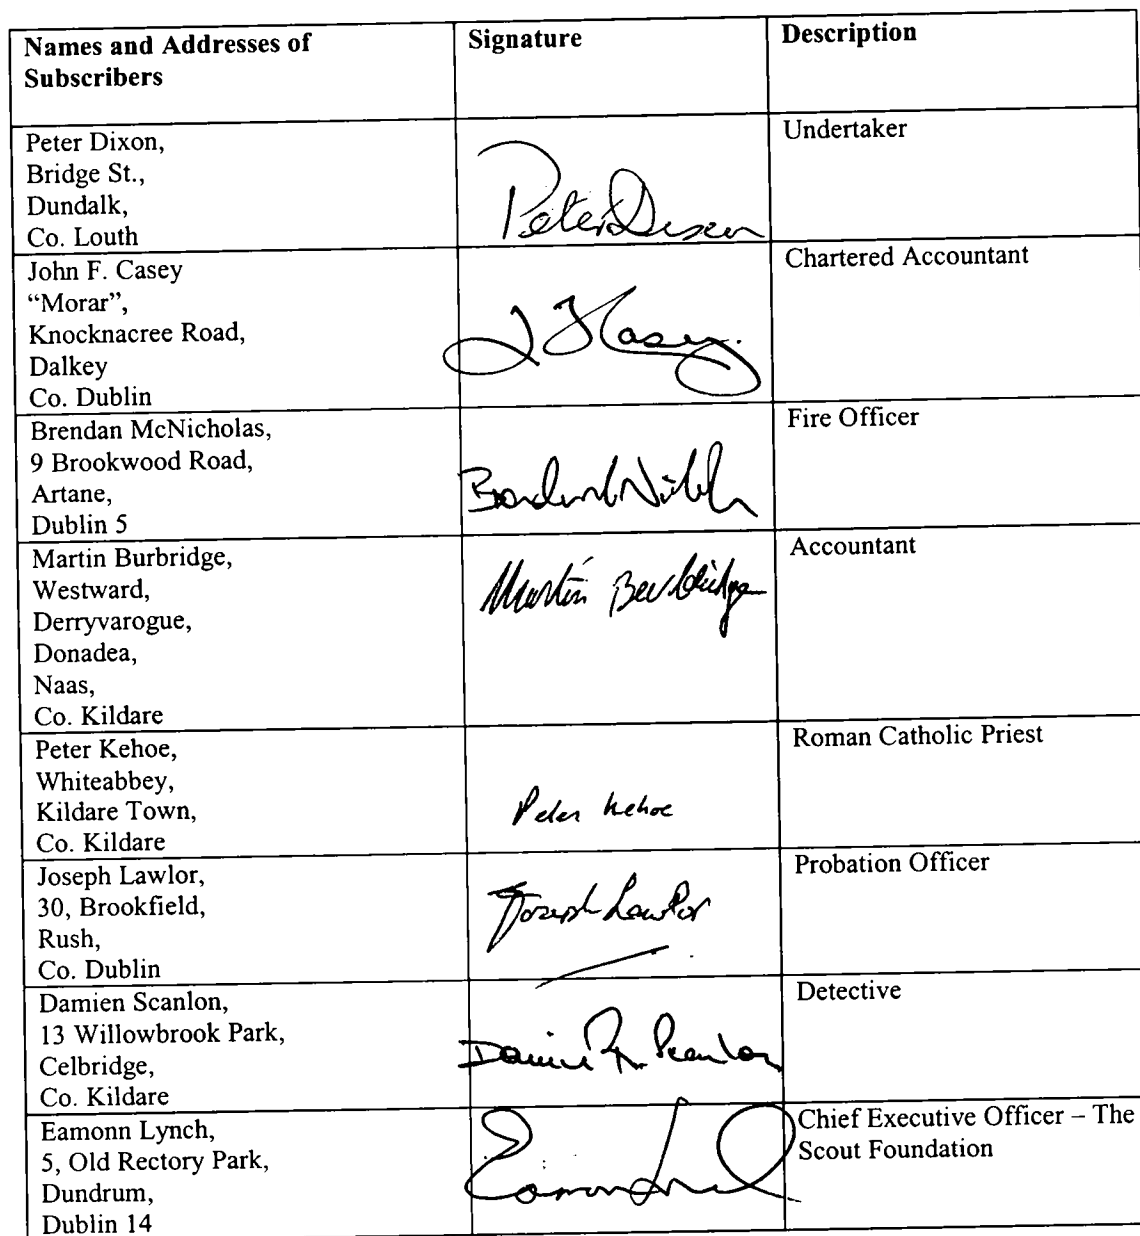 Names and Addresses of Subscribers
Signature
Description
Peter Dixon,
Bridge St.,
Dundalk,
Co. Louth
Peter Dixon
Undertaker
John F. Casey
“Morar”,
Knocknacree Road,
Dalkey
Co. Dublin
J F Casey
Chartered Accountant
Brendan McNicholas,
9 Brookwood Road,
Artane,
Dublin 5
Fire Officer
Martin Burbridge,
Westward,
Derryvarogue,
Donadea,
Naas,
Co. Kildare
Martin Burbridge
Accountant
Peter Kehoe,
Whiteabbey,
Kildare Town,
Co. Kildare
Peter Kehoe
Roman Catholic Priest
Joseph Lawlor,
30, Brookfield,
Rush,
Co. Dublin
Joseph Lawlor
Probation Officer
Damien Scanlon,
13 Willowbrook Park,
Celbridge,
Co. Kildare
Detective
Eamonn Lynch,
5, Old Rectory Park,
Dundrum,
Dublin 14
Chief Executive Officer – The
Scout Foundation